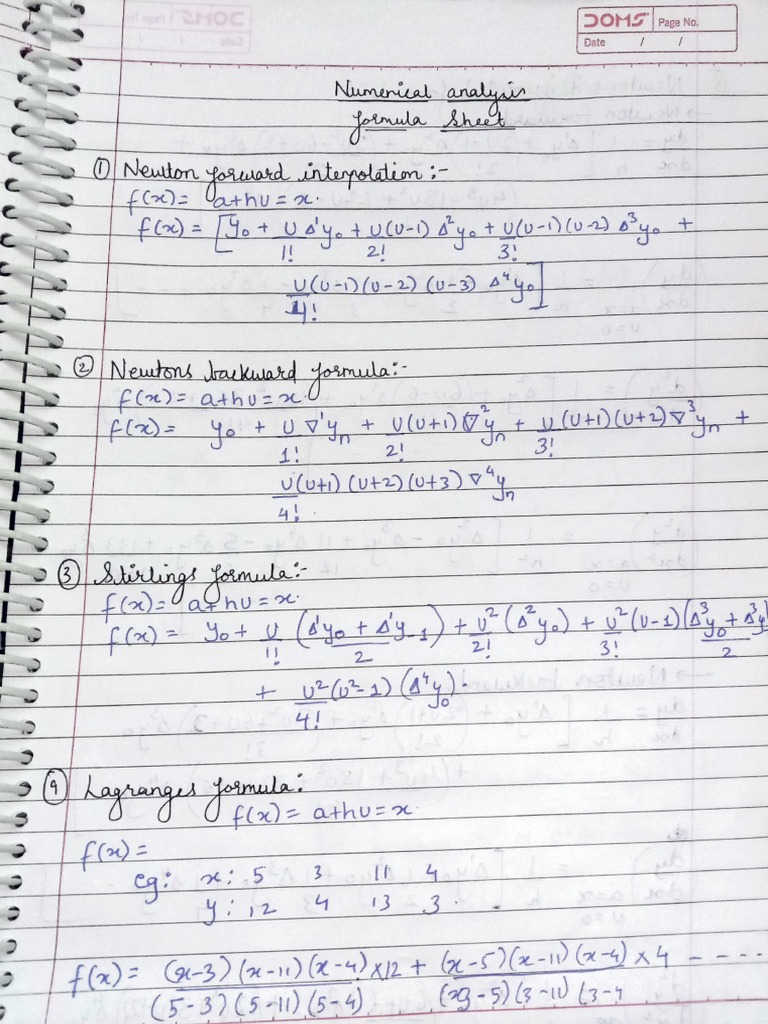 DOMS Page No.
Date / /
Numerical analysis
formula sheet
① Newton forward interpolation :-
f(x) = a+hu = x.
f(x) = [y₀ + U/1! Δ'y₀ + U(U-1)/2! Δ²y₀ + U(U-1)(U-2)/3! Δ³y₀ +
U(U-1)(U-2)(U-3)/4! Δ⁴y₀]
② Newtons backward formula:-
f(x) = a+hu = x.
f(x) = y₀ + U/1! ∇'yₙ + U(U+1)/2! ∇²yₙ + U(U+1)(U+2)/3! ∇³yₙ +
U(U+1)(U+2)(U+3)/4! ∇⁴yₙ
③ Stirlings formula:-
f(x) = a+hu = x.
f(x) = y₀ + U/1! (Δ'y₀ + Δ'y₋₁)/2 + U²/2! (Δ²y₀) + U²(U-1)/3! (Δ³y₀ + Δ³y)/2
+ U²(U²-1)/4! (Δ⁴y₀).
④ Lagranges formula:
f(x) = a+hu = x.
f(x) =
eg: x: 5 3 11 4
y: 12 4 13 3.
f(x) = (x-3)(x-11)(x-4)/(5-3)(5-11)(5-4) ×12 + (x-5)(x-11)(x-4)/(3-5)(3-11)(3-4 ×4 - - - - -